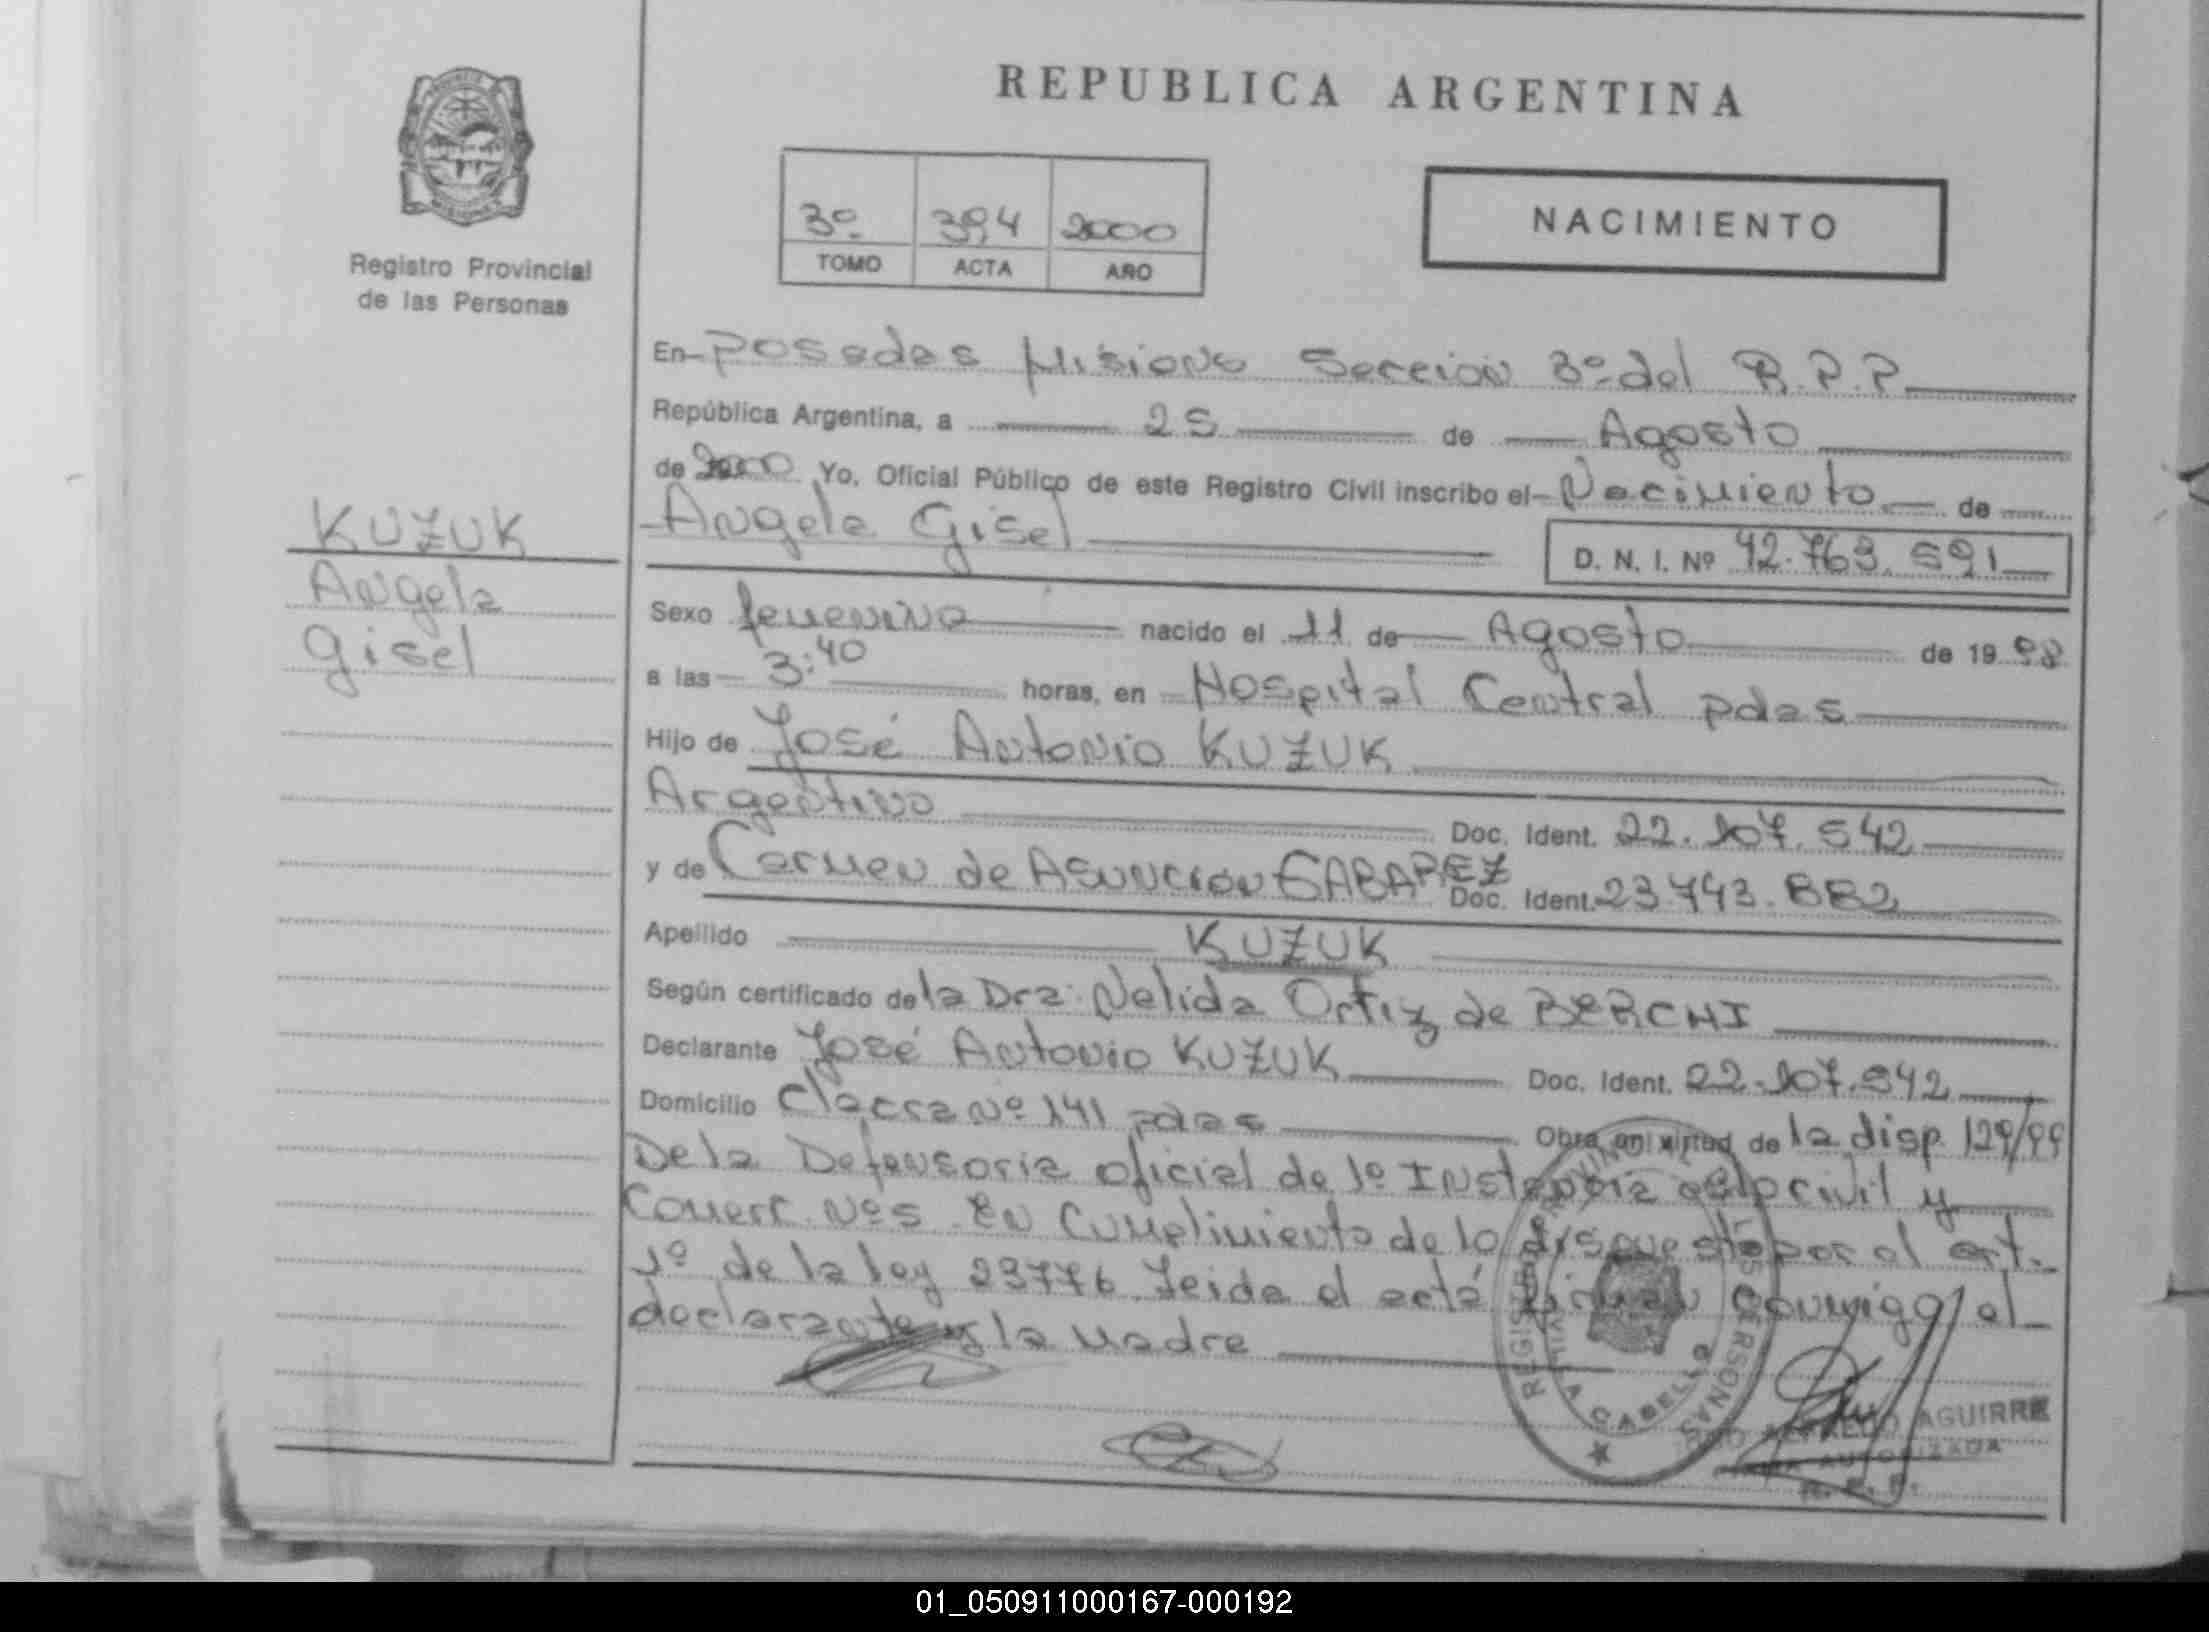 REPUBLICA ARGENTINA
Registro Provincial
de las Personas
3º 394 2000
TOMO ACTA AÑO
NACIMIENTO
En Posadas Misiones Sección 3º del R.P.P.
República Argentina, a 25 de Agosto
de 2000 Yo, Oficial Público de este Registro Civil inscribo el Nacimiento de
Angela Gisel
D. N. I. Nº 42.763.591
KUZUK
Angela
Gisel
Sexo femenino nacido el 11 de Agosto de 19 98
a las 3:40 horas, en Hospital Central pdas
Hijo de José Antonio KUZUK
Argentino Doc. Ident. 22.107.542
y de Carmen de Asuncion Doc. Ident. 23.743.882
Apellido KUZUK
Según certificado de la Dra: Nelida Ortiz de BERCHI
Declarante José Antonio KUZUK Doc. Ident. 22.107.542
Domicilio Chacra Nº 141 pdas Obra en virtud de la disp. 129/99
De la Defensoria oficial de 1º Instancia en lo civil y
Comerc. Nº5 En Cumplimiento de lo dispuesto por el art.
1º de la ley 23776 Leida el acta firman conmigo el
declarante y la madre
REGISTRO PROVINCIAL DE LAS PERSONAS
VILLA CABELLO
ALFREDO AGUIRRE
AUTORIZADA
R. P. P.
01_050911000167-000192